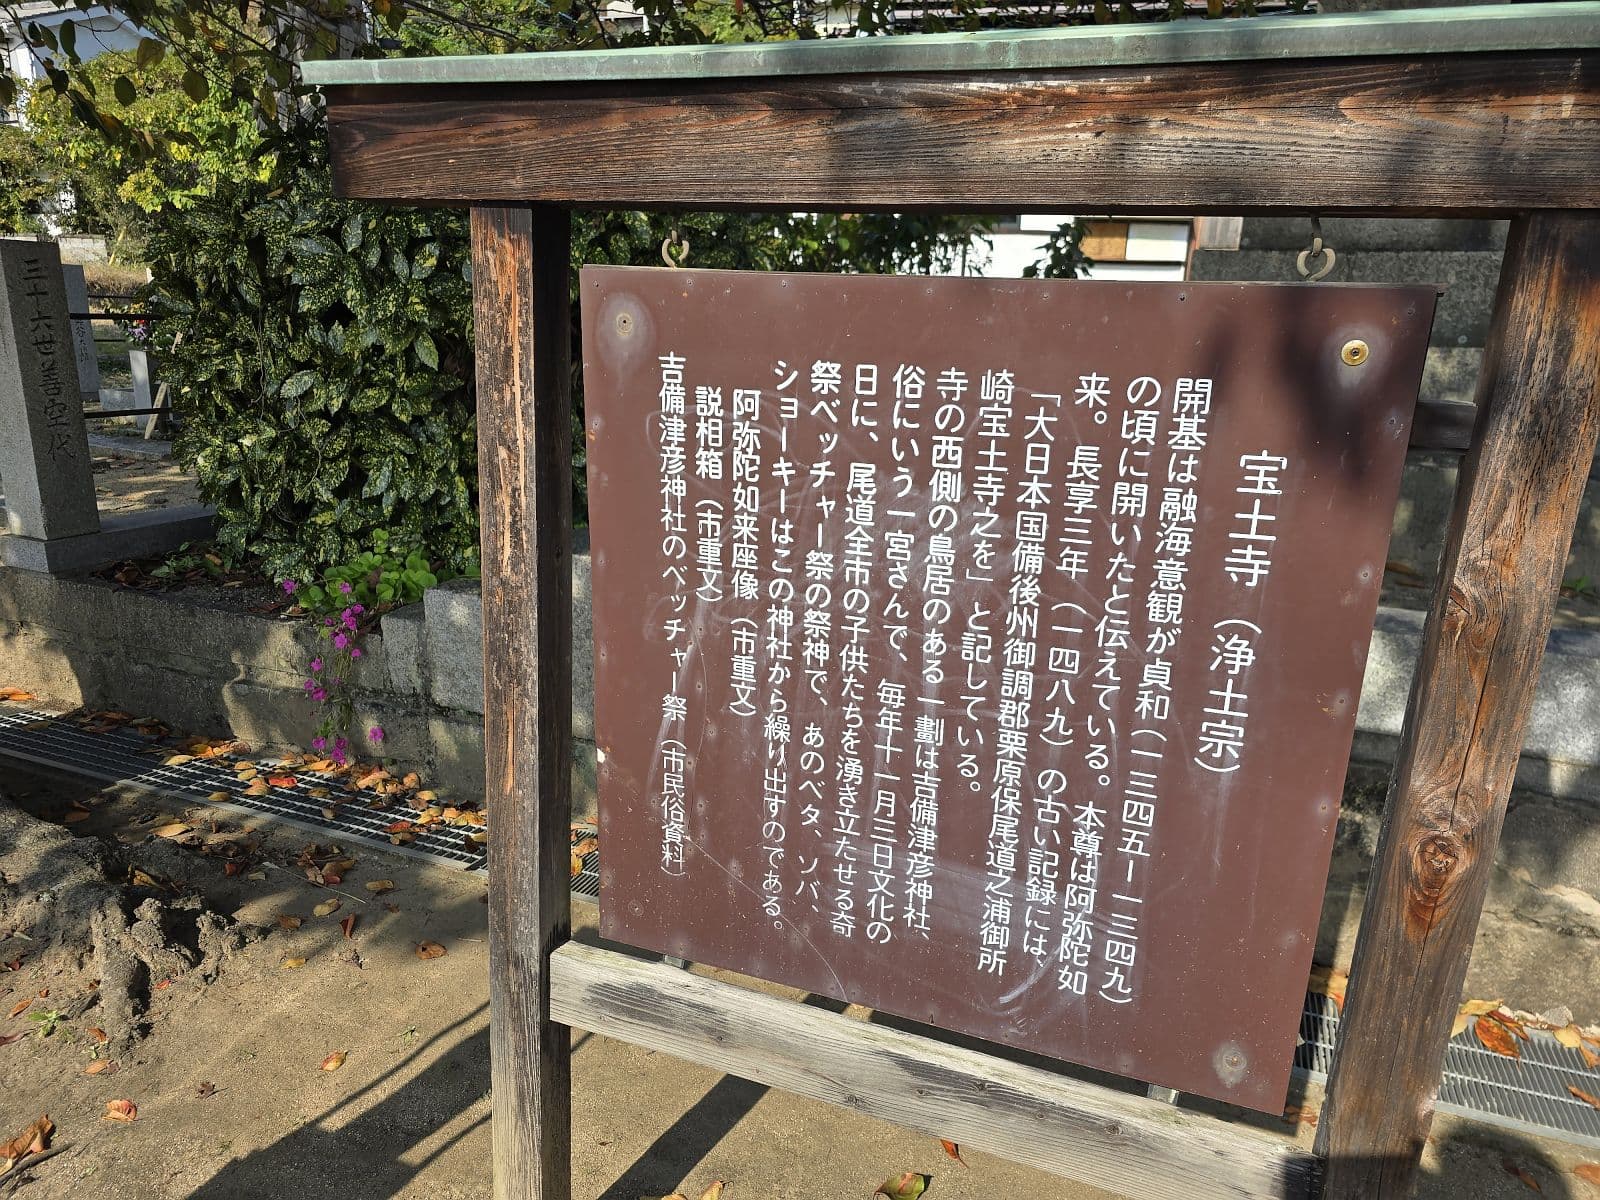 宝土寺（浄土宗）
開基は融海意観が貞和（一三四五ー一三四九）
の頃に開いたと伝えている。本尊は阿弥陀如
来。長享三年（一四八九）の古い記録には、
「大日本国備後州御調郡栗原保尾道之浦御所
崎宝土寺之を」と記している。
寺の西側の鳥居のある一劃は吉備津彦神社、
俗にいう一宮さんで、毎年十一月三日文化の
日に、尾道全市の子供たちを湧き立たせる奇
祭ベッチャー祭の祭神で、あのベタ、ソバ、
ショーキーはこの神社から繰り出すのである。
阿弥陀如来座像（市重文）
説相箱（市重文）
吉備津彦神社のベッチャー祭（市民俗資料）
三十六世善空代